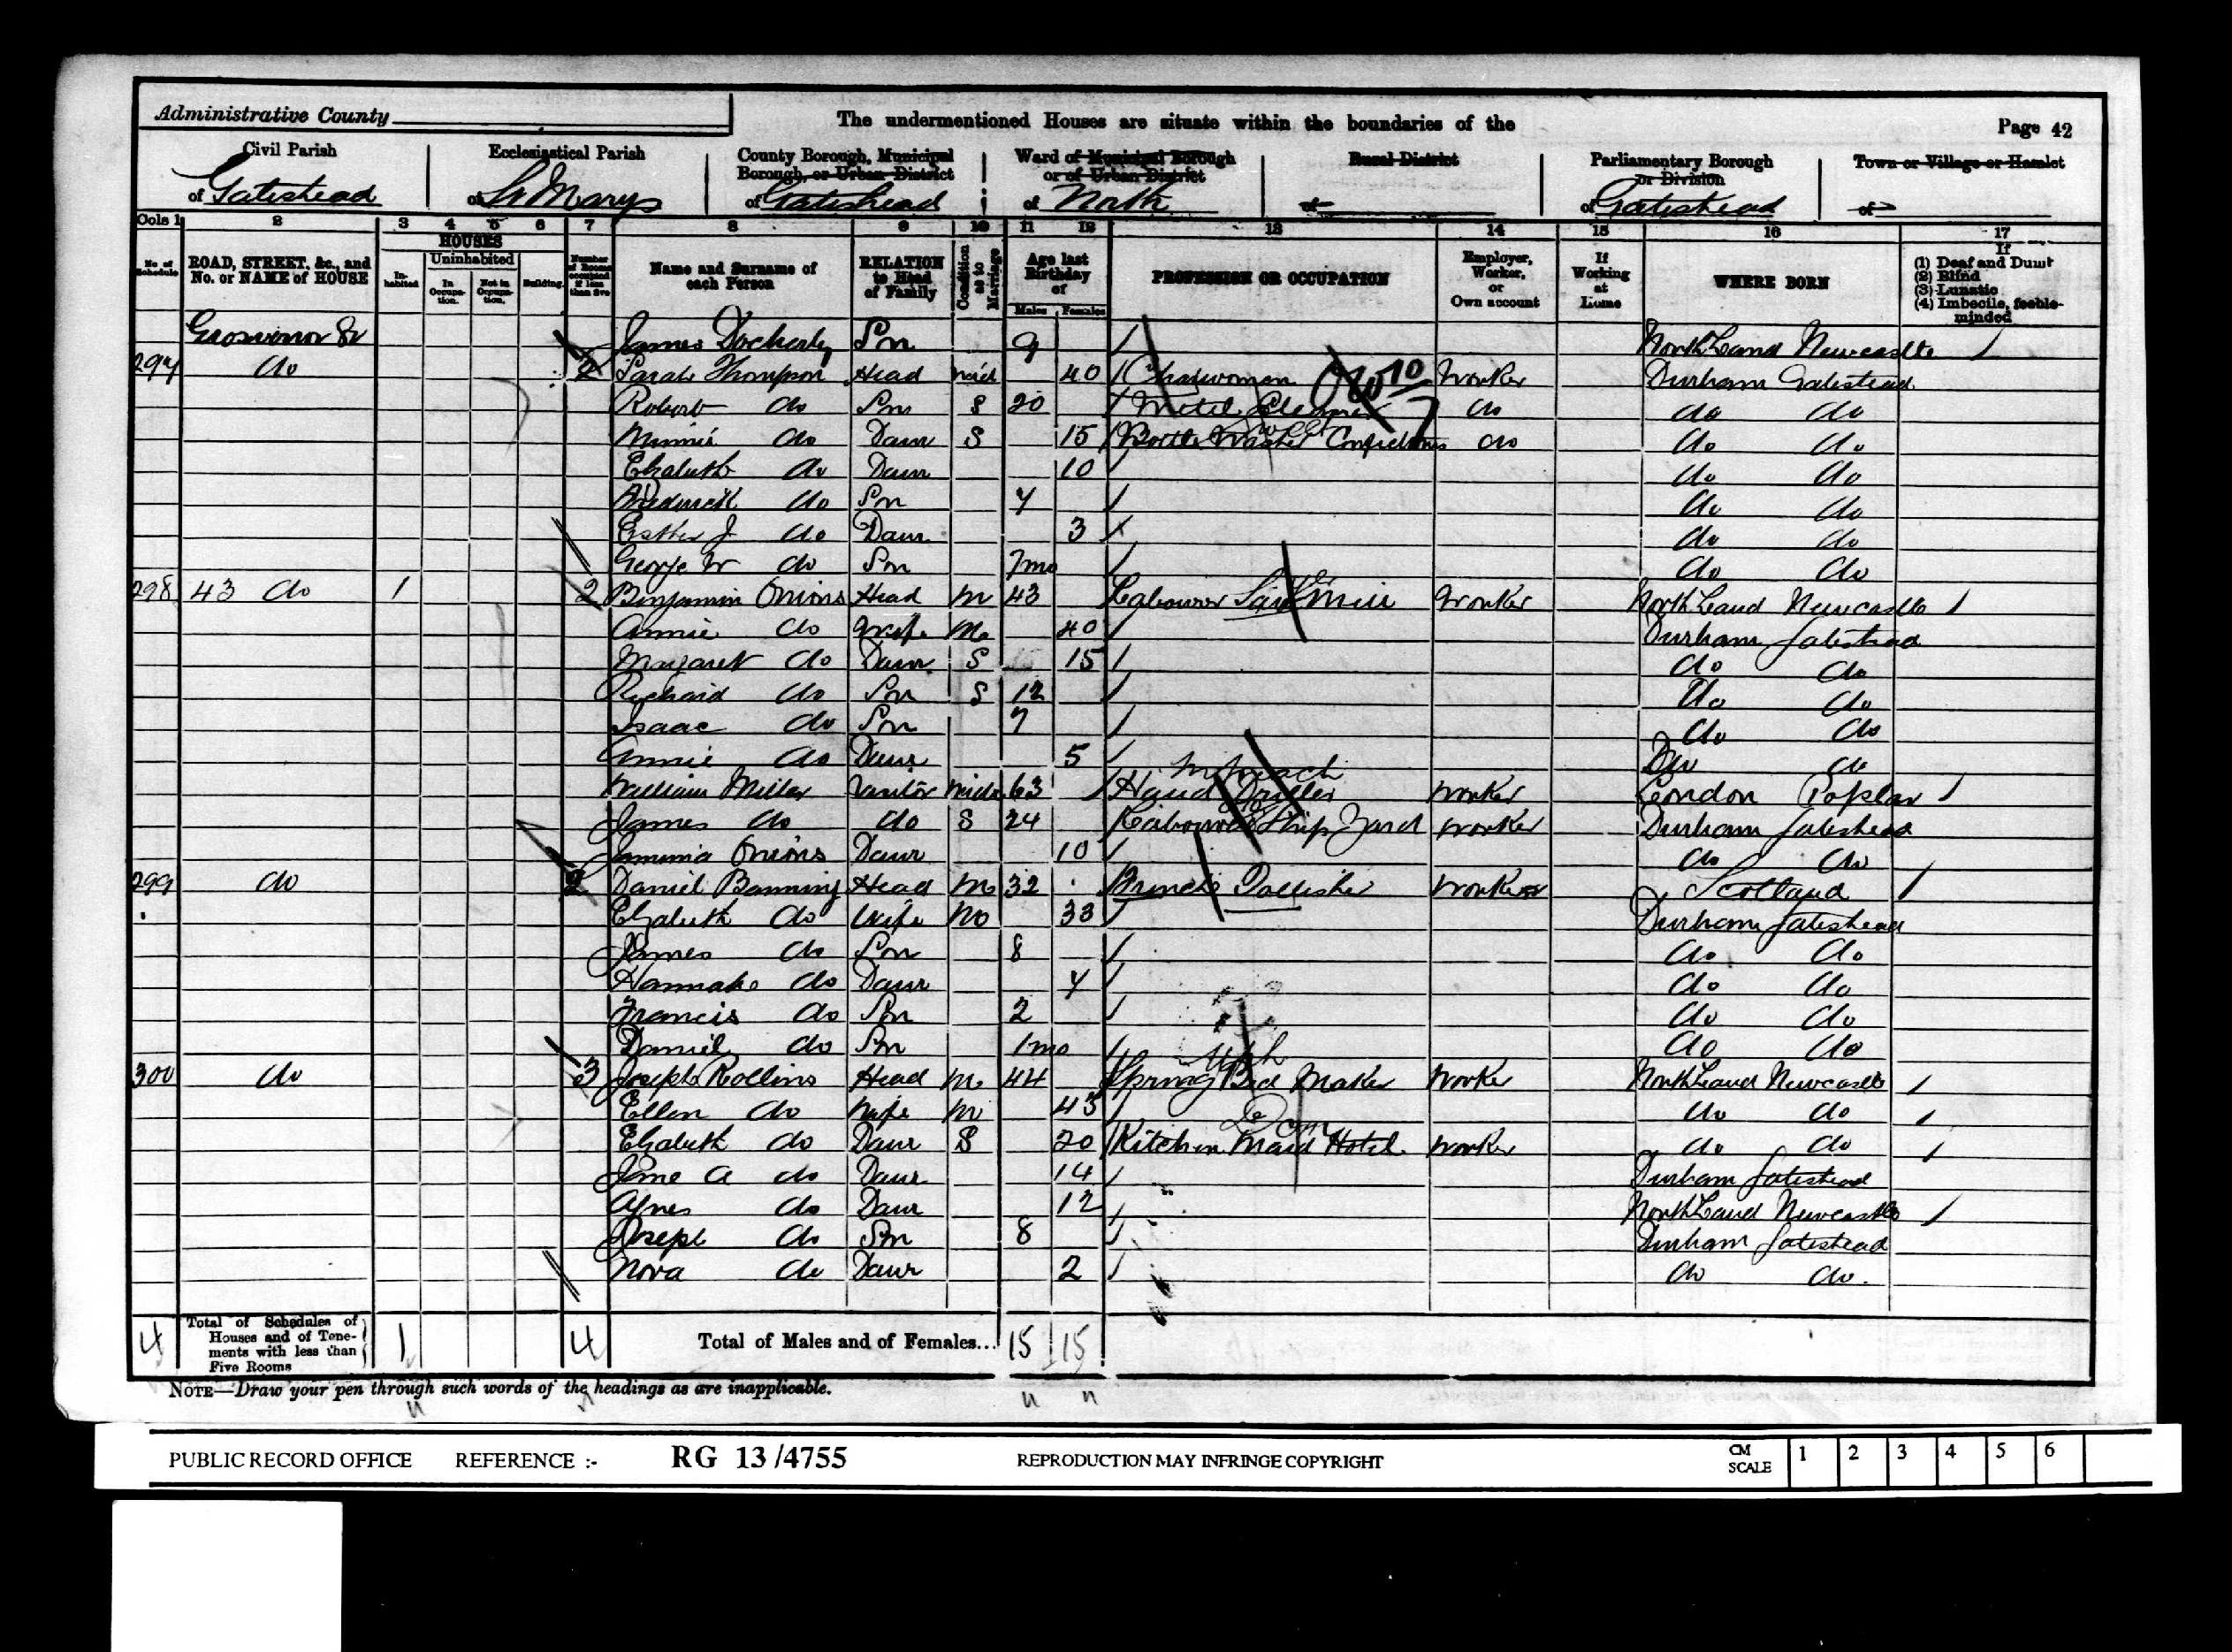 Administrative County
The undermentioned Houses are situate within the boundaries of the
Page 42
Civil Parish of Gateshead
Ecclesiastical Parish of St Marys
County Borough, Municipal Borough, or Urban District of Gateshead
Ward of Municipal Borough or of Urban District of North
Rural District of
Parliamentary Borough or Division of Gateshead
Town or Village or Hamlet of
Cols 1 2 3 4 5 6 7 8 9 10 11 12 13 14 15 16 17
No. of Schedule
ROAD, STREET, &c., and No. or NAME of HOUSE
HOUSES
Inhabited
Uninhabited
In Occupation.
Not in Occupation.
Building.
Number of Rooms occupied if less than five
Name and Surname of each Person
RELATION to Head of Family
Condition as to Marriage
Age last Birthday of
Males Females
PROFESSION OR OCCUPATION
Employer, Worker, or Own account
If Working at Home
WHERE BORN
If (1) Deaf and Dumb (2) Blind (3) Lunatic (4) Imbecile, feeble-minded
Grosvenor St James Docherty Son 9 Northland Newcastle
297 do 2 Sarah Thompson Head Wid 40 Charwoman Worker Durham Gateshead
Robert do Son S 20 Metal do do do
Minnie do Daur S 15 Bottle Washer do do do
Elizabeth do Daur 10 do do
Frederick do Son 7 do do
Esther J do Daur 3 do do
George W do Son 7mo do do
298 43 do 1 2 Benjamin Onions Head M 43 Labourer Saw Mill Worker Northland Newcastle
Annie do Wife M 40 Durham Gateshead
Margaret do Daur S 15 do do
Richard do Son S 12 do do
Isaac do Son 7 do do
Annie do Daur 5 do do
William Miller Visitor Wid 63 Hand Driller Worker London Poplar
James do do S 24 Labourer Ship Yard Worker Durham Gateshead
Jemima Onions Daur 10 do do
299 do 2 Daniel Banning Head M 32 French Pollisher Worker Scotland
Elizabeth do Wife M 33 Durham Gateshead
James do Son 8 do do
Hannah do Daur 4 do do
Francis do Son 2 do do
Daniel do Son 1mo do do
300 do 3 Joseph Rollins Head M 44 Spring Bed Maker Worker Northland Newcastle
Ellen do Wife M 43 do do
Dom
Elizabeth do Daur S 20 Kitchen Maid Hotel Worker do do
Jane A do Daur 14 Durham Gateshead
Agnes do Daur 12 Northland Newcastle
Joseph do Son 8 Durham Gateshead
Nora do Daur 2 do do.
4 Total of Schedules of Houses and of Tenements with less than Five Rooms 1 4 Total of Males and of Females... 15 15
NOTE—Draw your pen through such words of the headings as are inapplicable.
PUBLIC RECORD OFFICE REFERENCE :- RG 13/4755 REPRODUCTION MAY INFRINGE COPYRIGHT CM SCALE 1 2 3 4 5 6